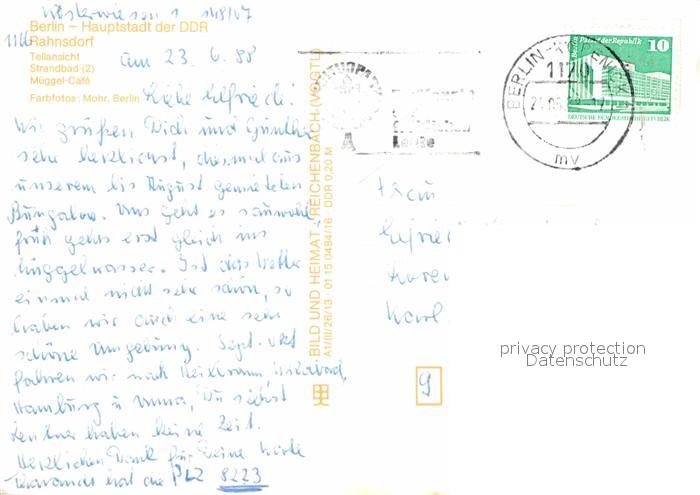 Küsterwiesen 1 148/07
1166
Berlin – Hauptstadt der DDR
Rahnsdorf
Teilansicht
Strandbad (2)
Müggel-Café
Farbfotos: Mohr, Berlin
am 23. 6. 88
Liebe Elfriede!
Wir grüßen Dich und Günther
sehr herzlichst, diesmal aus
unserem bis August gemieteten
Bungalow. Uns geht es sauwohl,
früh gehts erst gleich ins
Müggelwasser. Ist das Wetter
einmal nicht sehr schön, so
haben wir doch eine sehr
schöne Umgebung. Sept. - Okt
fahren wir nach Heilbronn,
Hamburg u Unna, Du siehst
Rentner haben keine Zeit.
Herzlichen Dank für Deine Karte
Tharandt hat die PLZ 8223
BILD UND HEIMAT REICHENBACH (VOGTL)
A1/III/26/13 · 01 15 0484/16 · DDR 0,20 M
BERLIN-KÖPENICK
1170
mv
Palast der Republik
10
DEUTSCHE DEMOKRATISCHE REPUBLIK
Frau
Elfrie
Karl
9
privacy protection
Datenschutz